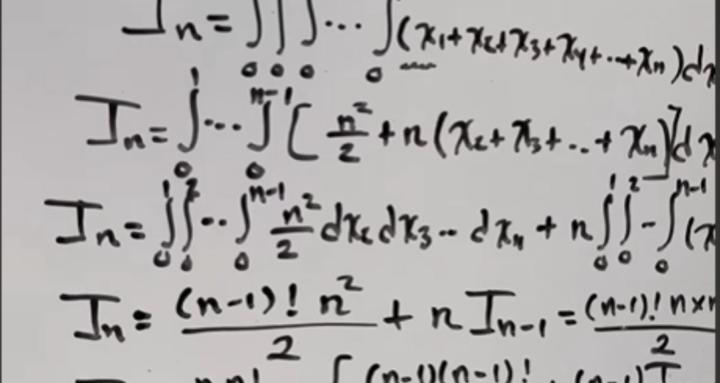 Iₙ = ∫₀ ∫₀ ∫₀ ... ∫₀ (x₁+x₂+x₃+x₄+..+xₙ)dx
Iₙ = ∫₀¹ ... ∫₀ⁿ⁻¹ [ n²/2 + n(x₂+x₃+..+xₙ)]dx
Iₙ = ∫₀¹ ∫₀² .. ∫₀ⁿ⁻¹ n²/2 dx₂ dx₃ .. dxₙ + n ∫₀¹ ∫₀² - ∫₀ⁿ⁻¹ (x
Iₙ = (n-1)! n²/2 + n Iₙ₋₁ = (n-1)! n×n/2